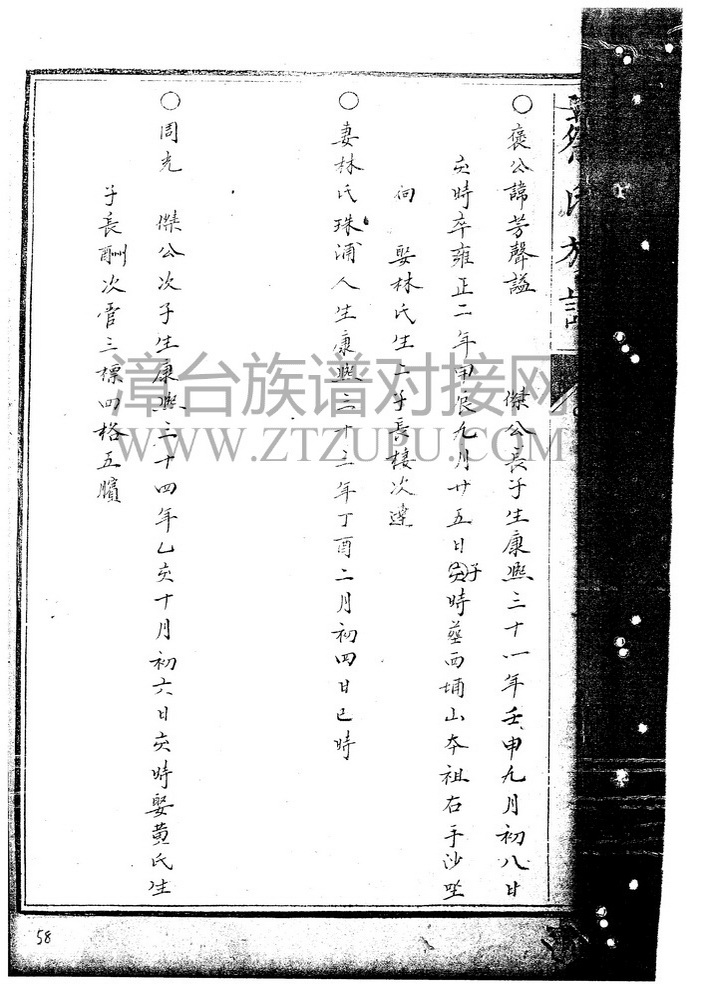 詹氏族譜
○褒公諱芳聲謚 傑公長子生康熙三十一年壬申九月初八日
亥時卒雍正二年甲辰九月廿五日亥子時塟西埔山本祖右手沙坐
向 娶林氏生二子長棲次達
○妻林氏珠浦人生康熙三十三年丁酉二月初四日巳時
○周光 傑公次子生康熙三十四年乙亥十月初六日亥時娶黃氏生
子長酬次管三標四格五臏
漳台族谱对接网
WWW.ZTZUPU.COM
58